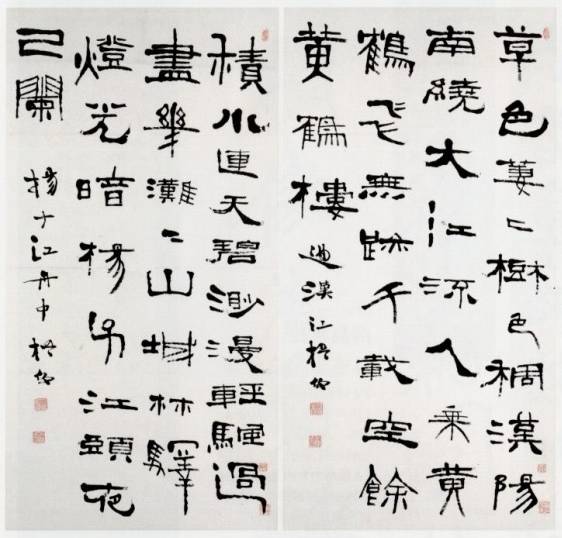 草色萋〻樹色稠漢陽
南繞大江流人乘黄
鶴飛無跡千載空餘
黄鶴樓
過漢江
積水連天碧渺漫輕颿過
盡幾灘〻山城林驛
燈光暗楊子江頭夜
已闌
揚子江舟中